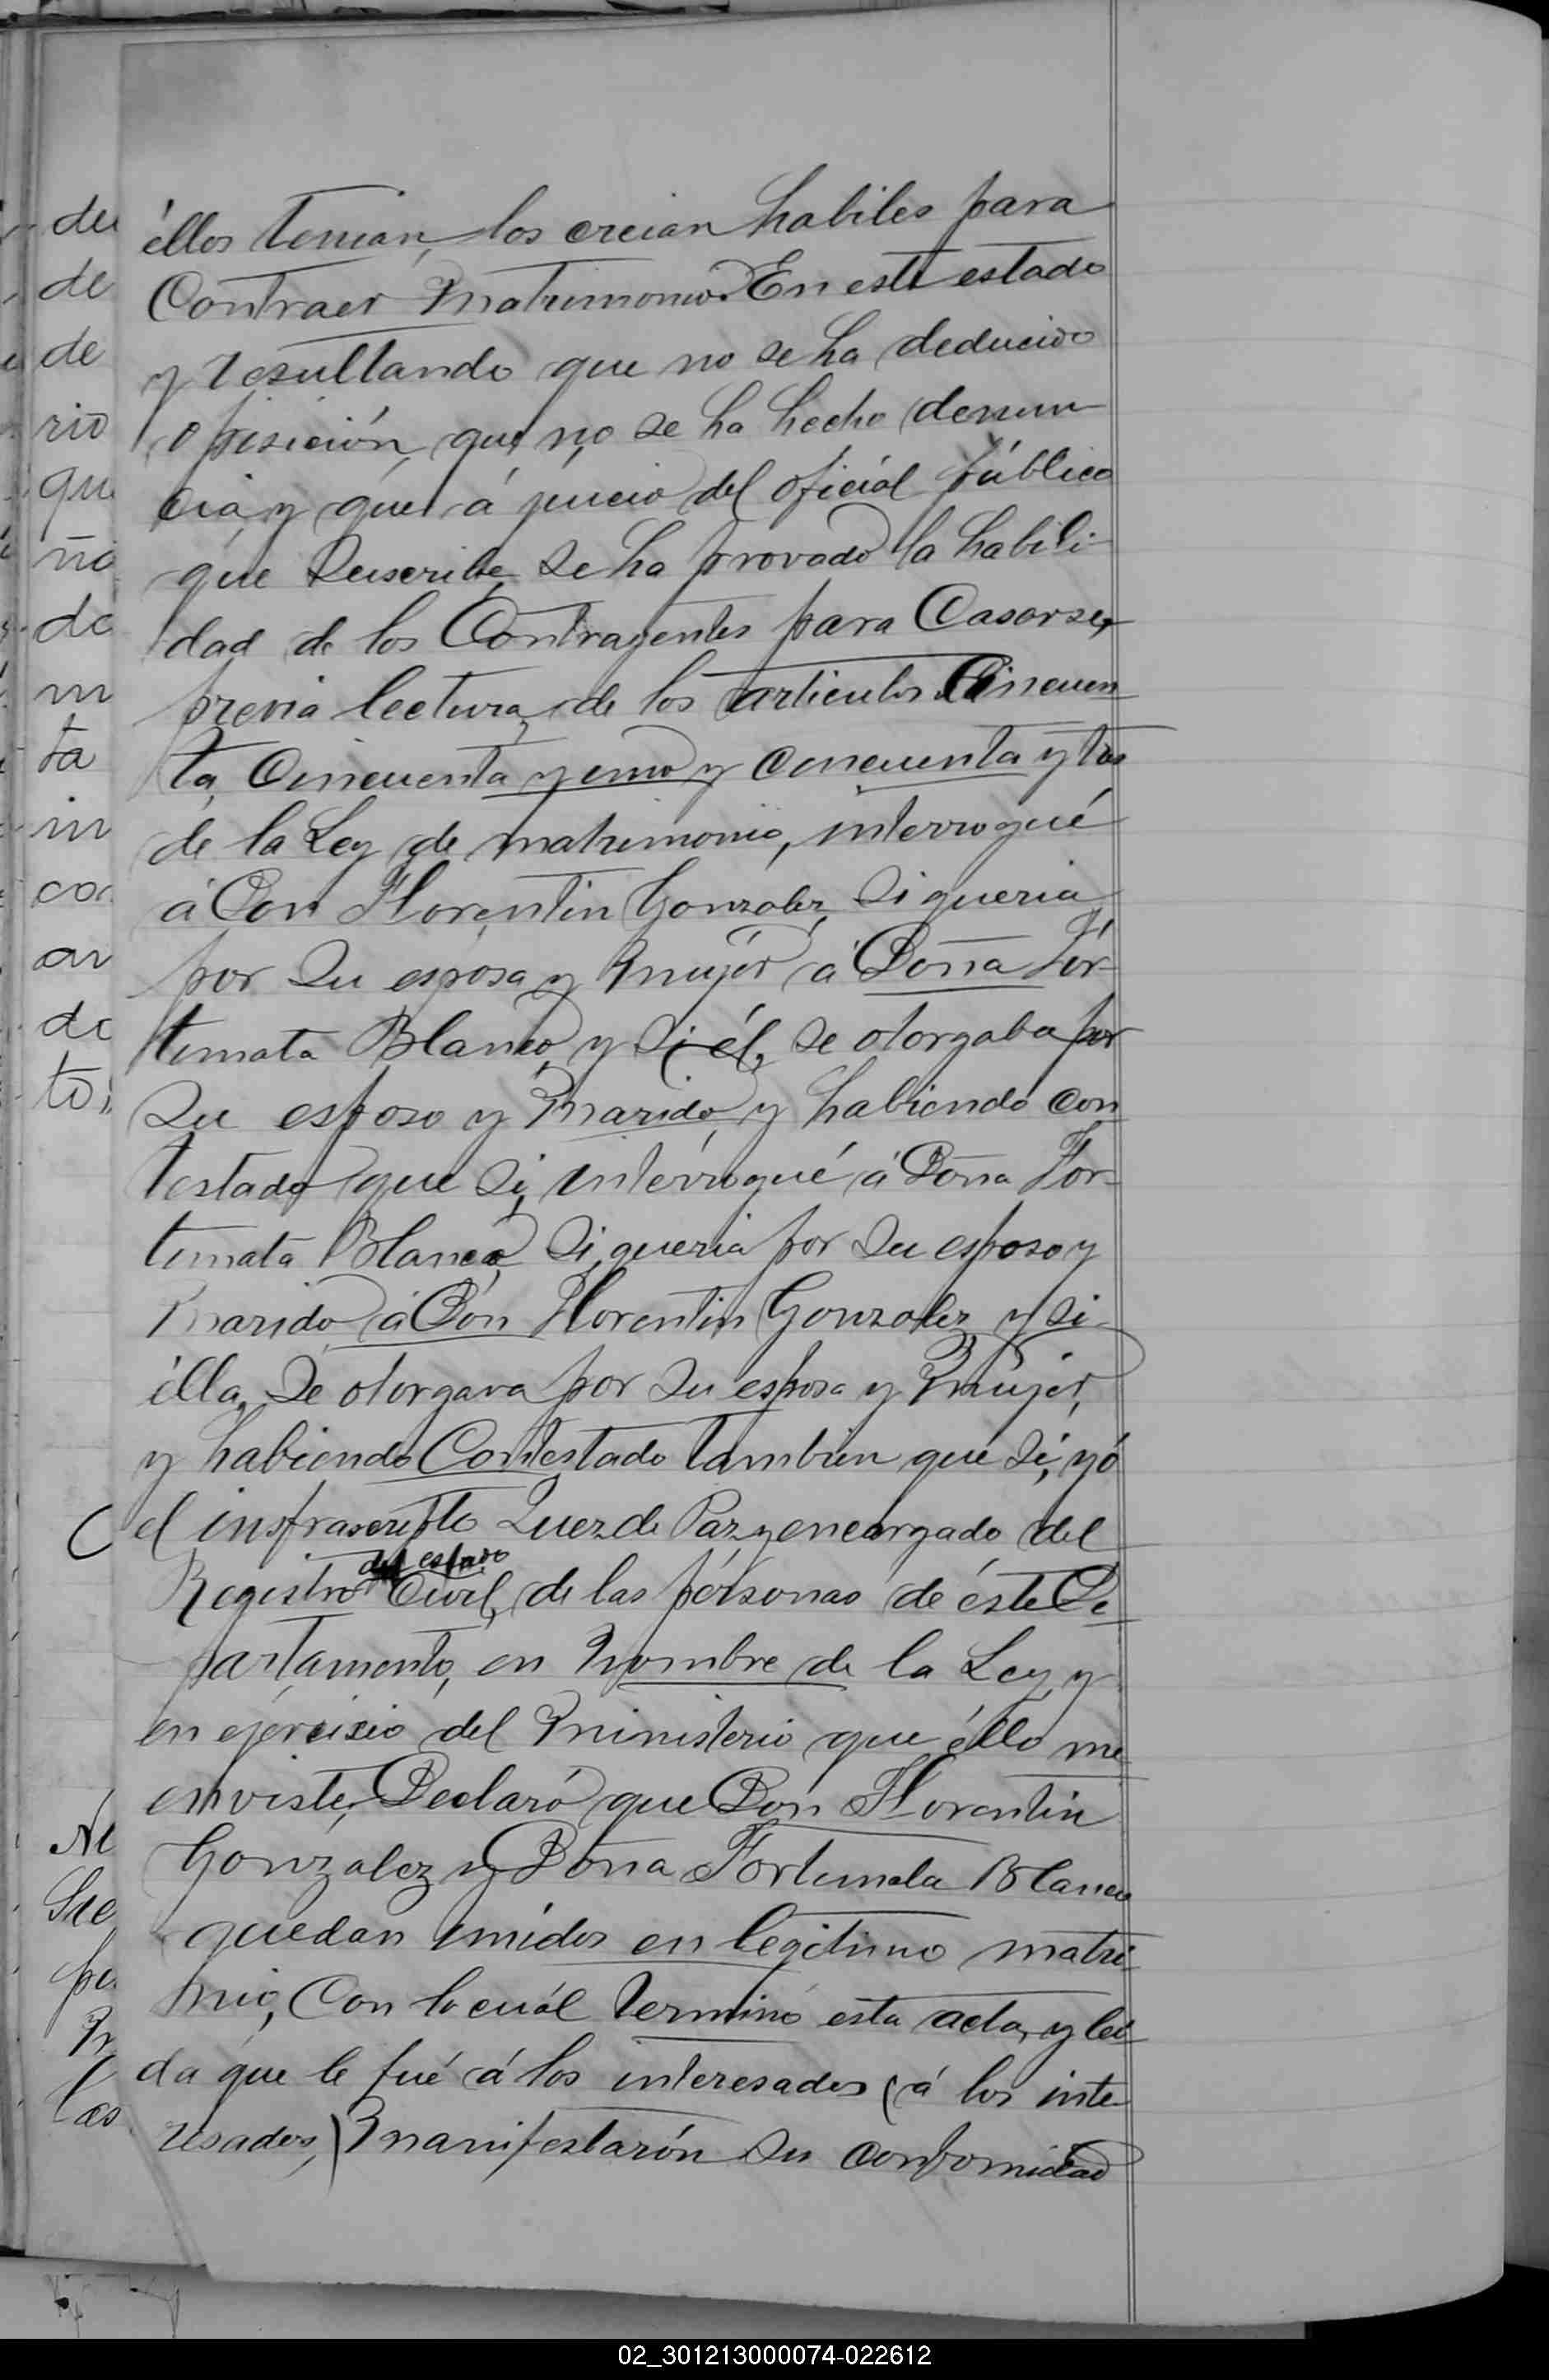 de
de
de
rio
qu
ña
de
m
ta
in
con
an
de
to
Al
Sie
pe
M
las
éllos tenian, los creian habiles para
Contraer Matrimonio. En este estado
y resultando que no se ha deducido
oposición, que no se ha hecho denun
cia, y que á juicio del oficiál público
que Suscribe, se ha provado la habili-
dad de los Contrayentes para Casarse,
previa lectura, de los articulos Cincuen
ta, Cincuenta y uno y cincuenta y tres
de la Ley de matrimonio, interrogué
á Don Florentin Gonzalez, Si queria
por Su esposa y Mujér á Doña For-
tunata Blanco, y Si él, se otorgaba por
Su esposo y Marido, y habiendo con
testado que Si, interrogué á Doña For-
tunata Blanco, Si queria por Su esposo y
Marido á Dón Florentin Gonzalez y Si
élla, Se otorgava por Su esposa y Mujér,
y habiendo Contestado tambien que Si, yó
el insfrascripto Juez de Paz y encargado del
del estado
Registro Civil, de las pérsonas de éste De
partamento, en Nombre de la Ley, y
en ejércisio del Ministerio que éllo me
enviste, Declaró que Dón Florentin
Gonzalez y Doña Fortunata Blanco
quedan unidos en legitimo matri-
mio, Con lo cuál terminó esta acta, y lei
da que le fué á los interesados (á los inte-
resados,) Manifestarón Su conformidad
02_301213000074-022612